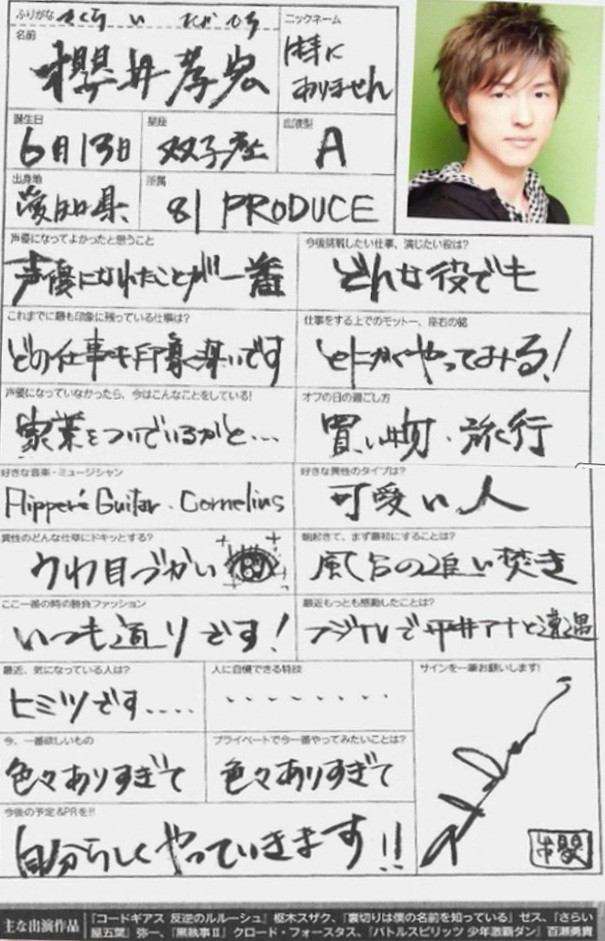 ふりがな さくらい たかひろ
名前
櫻井孝宏
ニックネーム
特に
ありません
誕生日
6月13日
星座
双子座
血液型
A
出身地
愛知県
所属
81 PRODUCE
声優になってよかったと思うこと
声優になれたことが一番
今後挑戦したい仕事、演じたい役は?
どんな役でも
これまでに最も印象に残っている仕事は?
どの仕事も印象深いです
仕事をする上でのモットー、座右の銘
とにかくやってみる!
声優になっていなかったら、今はこんなことをしている!
家業をついでいるかと…
オフの日の過ごし方
買い物・旅行
好きな音楽・ミュージシャン
Flipper's Guitar・Cornelius
好きな異性のタイプは?
可愛い人
異性のどんな仕草にドキッとする?
うわ目づかい
朝起きて、まず最初にすることは?
風呂の追い焚き
ここ一番の時の勝負ファッション
いつも通りです!
最近もっとも感動したことは?
フジTVで平井アナと遭遇
最近、気になっている人は?
ヒミツです....
人に自慢できる特技
........
サインを一筆お願いします!
今、一番欲しいもの
色々ありすぎて
プライベートで今一番やってみたいことは?
色々ありすぎて
今後の予定&PRを!!
自分らしくやっていきます!!
櫻
主な出演作品
『コードギアス 反逆のルルーシュ』枢木スザク、『裏切りは僕の名前を知っている』ゼス、『さらい
屋五葉』弥一、『黒執事Ⅱ』クロード・フォースタス、『バトルスピリッツ 少年激覇ダン』百瀬勇貴